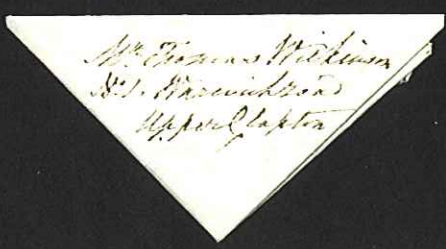 Mr Thomas Wilkinson
No 1. Warwick Road
Upper Clapton